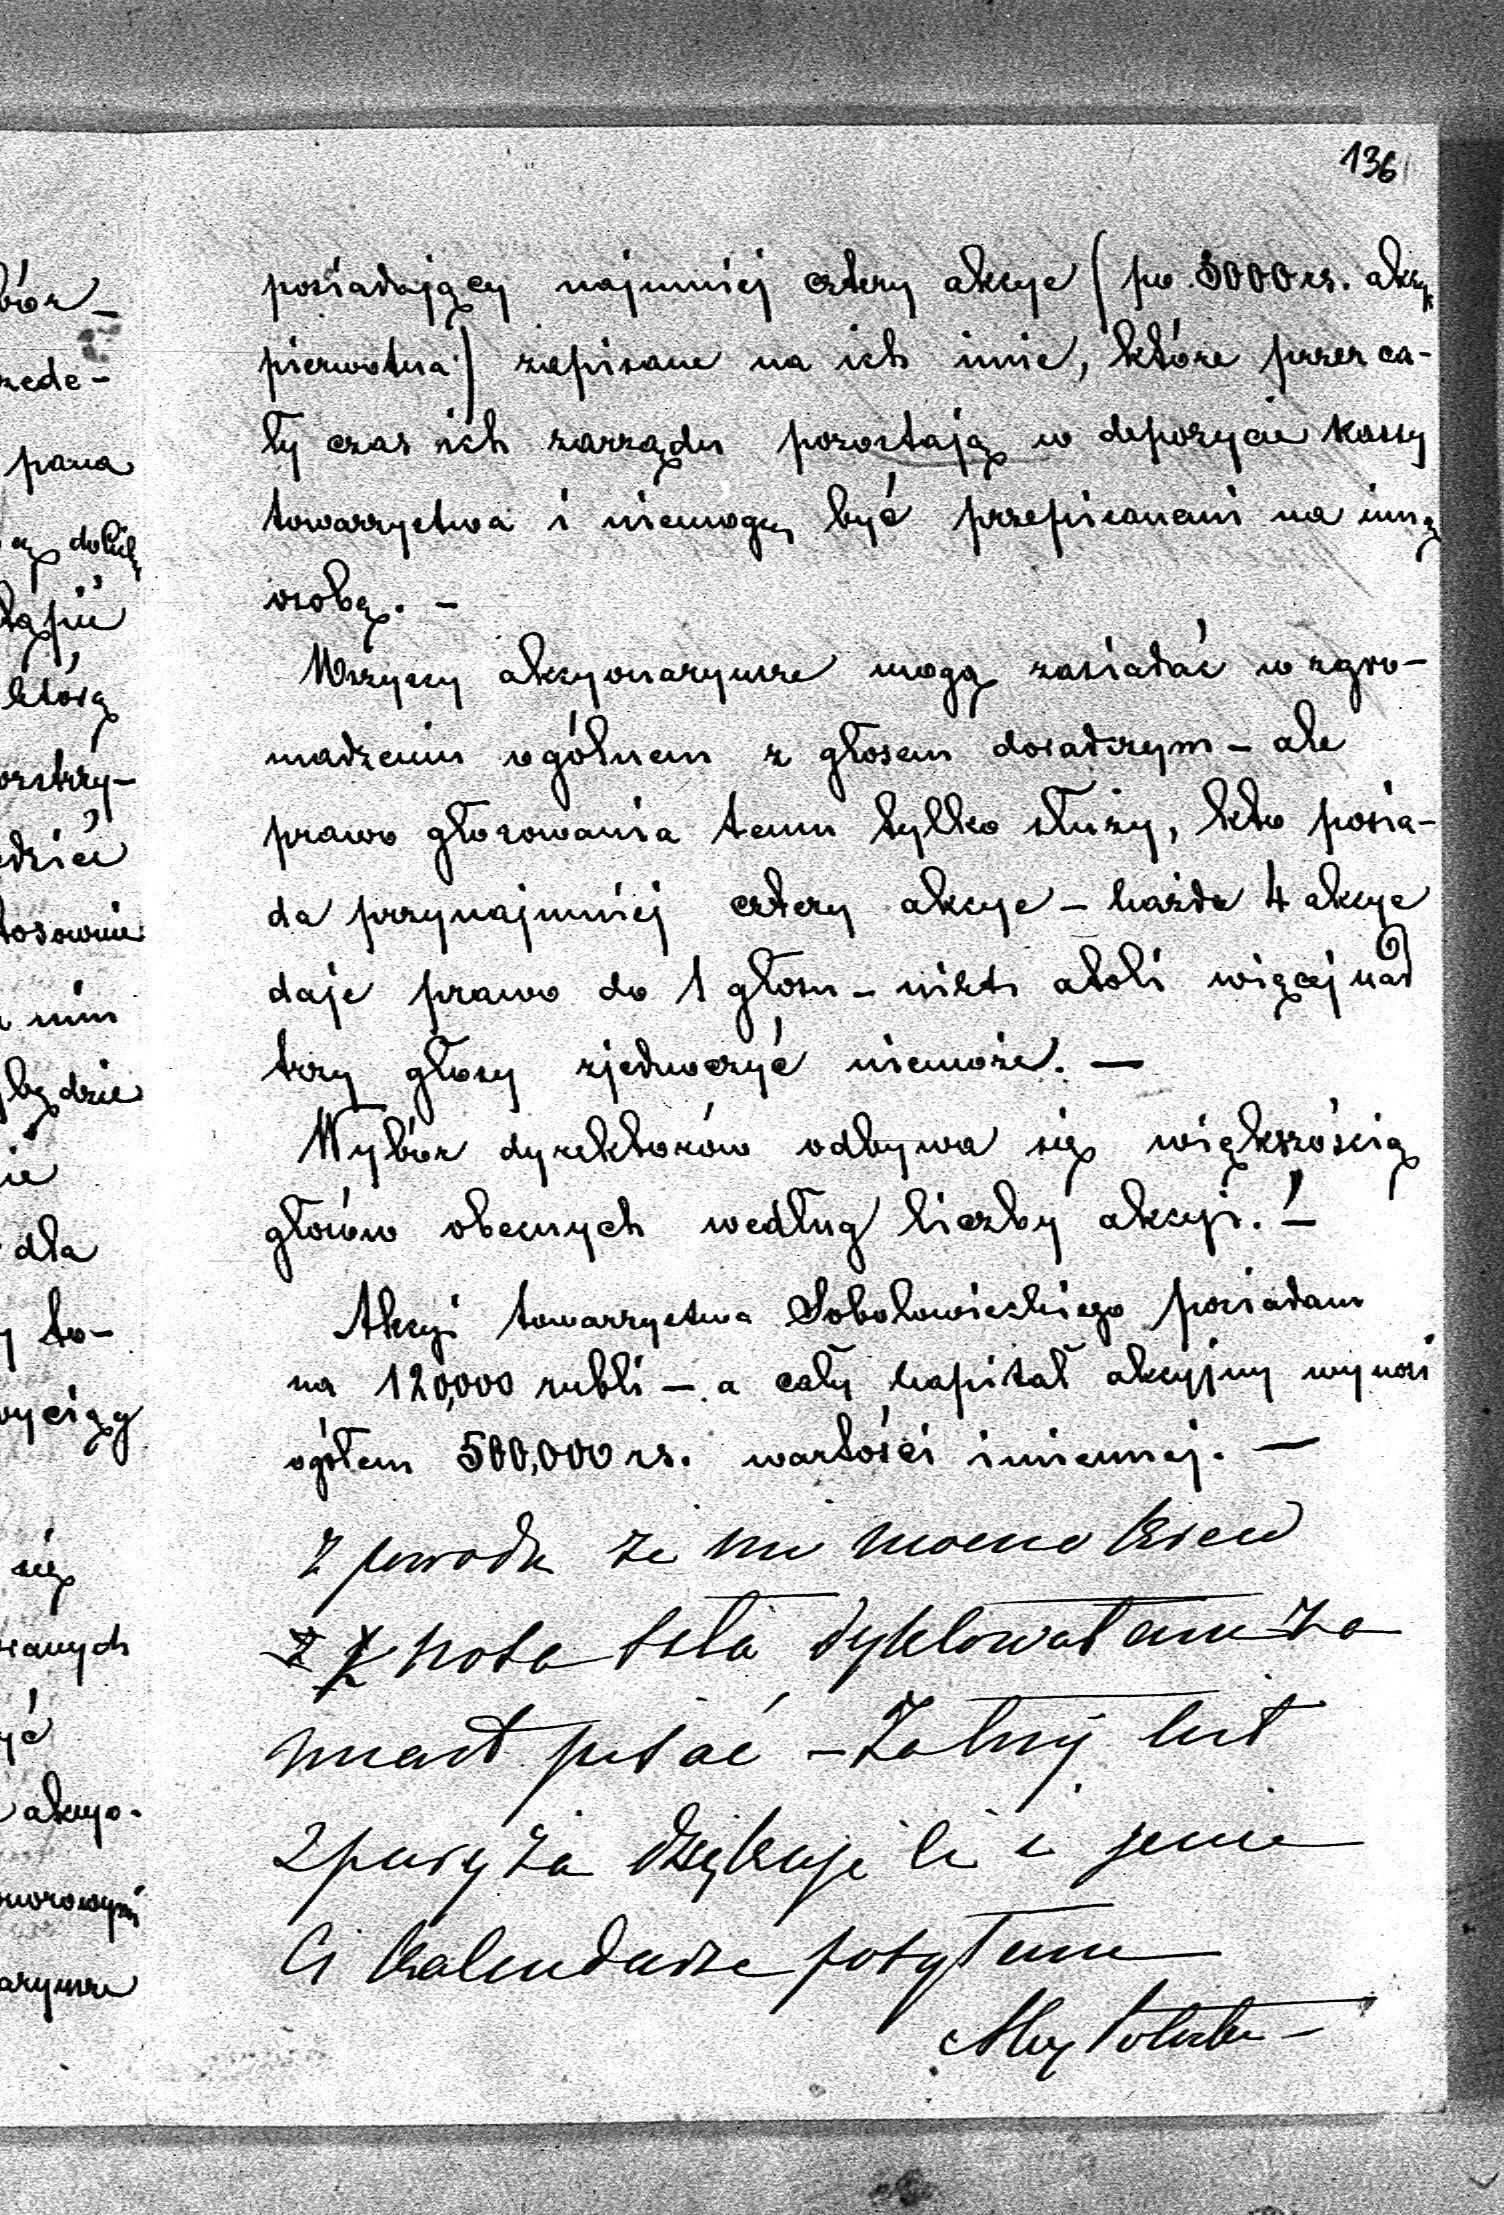 136
posiadający najmniej cztery akcye (po 5000 rs. akcyę
pierwotna) zapisane na ich imie, które przez ca-
ły czas ich zarządu pozostają w depozycie kassy
towarzystwa i niemogą być przepisanemi na inną
osobę. –
Wszyscy akcyonaryusze mogą zasiadać w zgro-
madzeniu ogólnem z głosem doradczym – ale
prawo głosowania temu tylko służy, kto posia-
da przynajmniej cztery akcye – każde 4 akcye
daje prawo do 1 głosu – nikt atoli więcej nad
trzy głosy zjednoczyć niemoże. –
Wybór dyrektorów odbywa się większością
głosów obecnych według liczby akcyi. –
Akcyi towarzystwa Sobolowieckiego posiadam
na 120,000 rubli – a cały kapitał akcyjny wynosi
ogółem 500,000 rs. wartości imiennej. –
Z powodu że mi mocno
nota ta dyktowałam za
miast pisać – Za list
z Paryża dziękuję Ci i
Ci kalendarze posyłam
bór –
rzede –
pana
którą
dla
to –
wyciąg
się
akcyo.